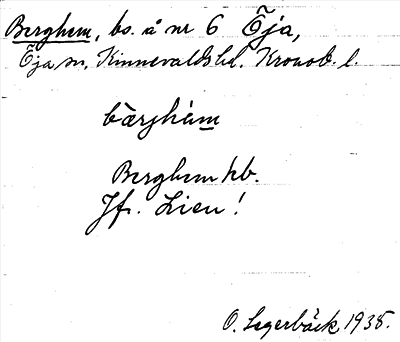 Berghem, bs. å nr 6 Öja,
Öja sn, Kinnevaldshd. Kronob. l.
bärjhäm
Berghem hb.
Jfr. Lien!
O. Lagerbäck 1938.